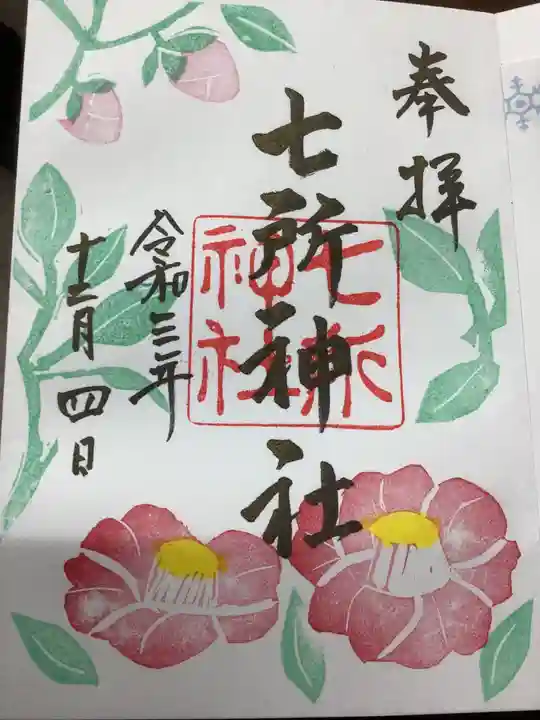 奉拝
七所神社
七所
神社
令和三年
十二月四日